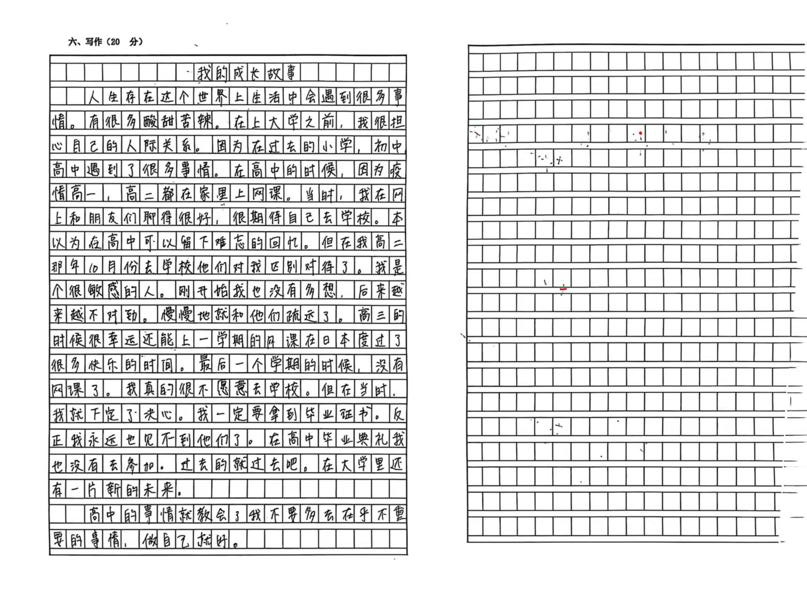 六、写作（20 分）
我的成长故事
人生存在这个世界上生活中会遇到很多事
情。有很多酸甜苦辣。在上大学之前，我很担
心自己的人际关系。因为在过去的小学，初中
高中遇到了很多事情。在高中的时候，因为疫
情高一，高二都在家里上网课。当时，我在网
上和朋友们聊得很好，很期得自己去学校。本
以为在高中可以留下难忘的回忆。但在我高二
那年10月份去学校他们对我区别对待了。我是
个很敏感的人。刚开始我也没有多想，后来越
来越不对劲。慢慢地就和他们疏远了。高三的
时候很幸运还能上一学期的网课在日本度过了
很多快乐的时间。最后一个学期的时候，没有
网课了。我真的很不愿意去学校。但在当时，
我就下定了决心。我一定要拿到毕业证书。反
正我永远也见不到他们了。在高中毕业典礼我
也没有去参加．过去的就过去吧。在大学里还
有一片新的未来。
高中的事情就教会了我不要多去在乎不重
要的事情，做自己就好。